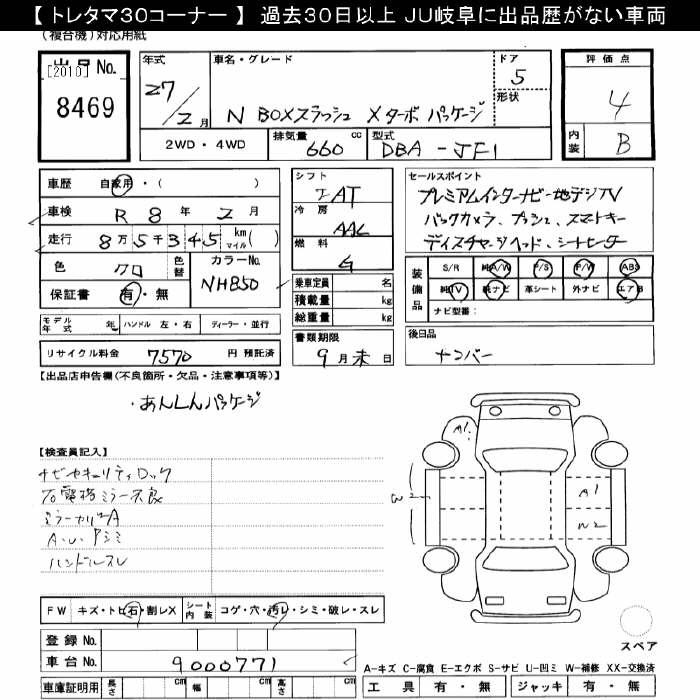 【 トレタマ30コーナー 】 過去30日以上 JU岐阜に出品歴がない車両
(複合機)対応用紙
出品No.
[2010]
8469
年式
27/2月
車名・グレード
N BOXスラッシュ Xターボ パッケージ
ドア
5
形状
評価点
4
内装
B
2WD・4WD
排気量
660 cc
型式
DBA-JF1
車歴 自家用・( )
車検 R 8年 2月
走行 8万5千345 km マイル( )
色 クロ 色替
カラーNo.
NH850
保証書 有・無
シフト
IAT
冷房
AAC
燃料
G
セールスポイント
プレミアムインターナビー地デジTV
バックカメラ、プッシュ、スマートキー
ディスチャージヘッド、シートヒーター
装備品
S/R 純A/W P/S P/W ABS
純TV 純ナビ 革シート 外ナビ エアB
ナビ型番:
乗車定員 名
積載量 kg
総重量 kg
モデル年式 年 ハンドル 左・右 ディーラー・並行
リサイクル料金 7570 円 預託済
書類期限
9月末日
後日品
ナンバー
【出品店申告欄(不良箇所・欠品・注意事項等)】
・あんしんパッケージ
【検査員記入】
ナビセキュリティロック
右電格ミラー不良
ミラーカバーA
A・U・Pシミ
ハンドルスレ
A1
A1
W2
W2
FW キズ・トビ石・割レX シート内装 コゲ・穴・汚レ・シミ・破レ・スレ
登録No.
車台No. 9000771
車庫証明用 長さ cm 幅 cm 高さ cm
スペア
A-キズ C-腐食 E-エクボ S-サビ U-凹ミ W-補修 XX-交換済
工具 有・無 ジャッキ 有・無